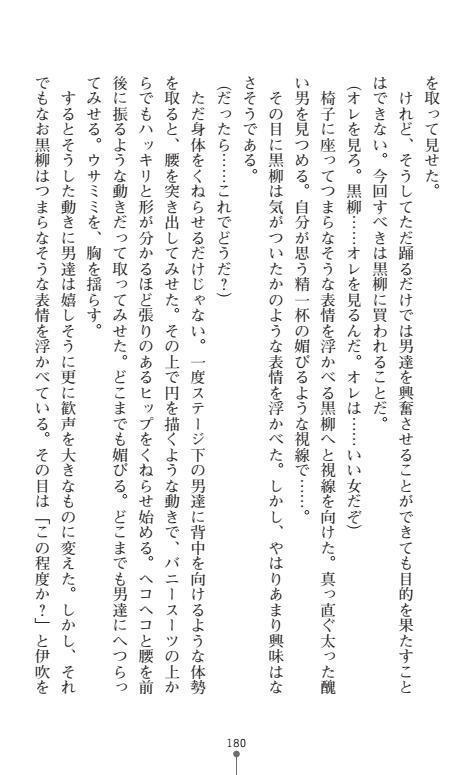 を取って見せた。
　けれど、そうしてただ踊るだけでは男達を興奮させることができても目的を果たすこと
はできない。今回すべきは黒柳に買われることだ。
（オレを見ろ。黒柳……オレを見るんだ。オレは……いい女だぞ）
　椅子に座ってつまらなそうな表情を浮かべる黒柳へと視線を向けた。真っ直ぐ太った醜
い男を見つめる。自分が思う精一杯の媚びるような視線で……。
　その目に黒柳は気がついたかのような表情を浮かべた。しかし、やはりあまり興味はな
さそうである。
（だったら……これでどうだ？）
　ただ身体をくねらせるだけじゃない。一度ステージ下の男達に背中を向けるような体勢
を取ると、腰を突き出してみせた。その上で円を描くような動きで、バニースーツの上か
らでもハッキリと形が分かるほど張りのあるヒップをくねらせ始める。ヘコヘコと腰を前
後に振るような動きだって取ってみせた。どこまでも媚びる。どこまでも男達にへつらっ
てみせる。ウサミミを、胸を揺らす。
　するとそうした動きに男達は嬉しそうに更に歓声を大きなものに変えた。しかし、それ
でもなお黒柳はつまらなそうな表情を浮かべている。その目は「この程度か？」と伊吹を
180